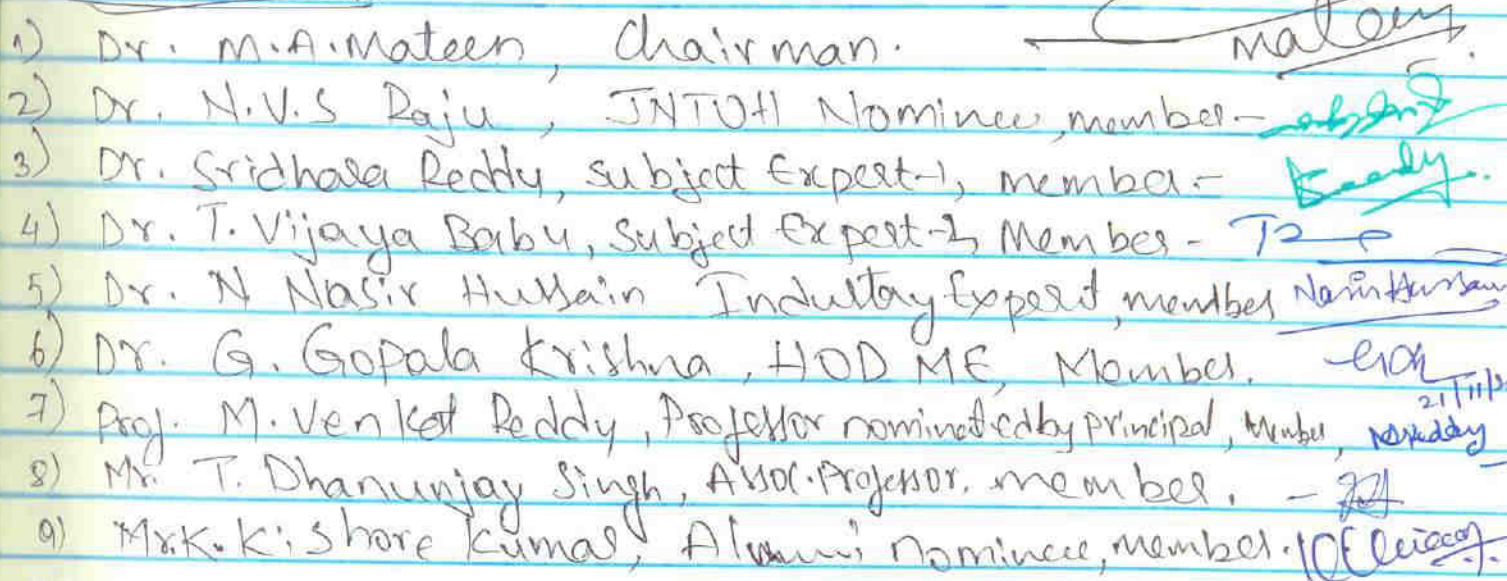 1) Dr. M.A.Mateen, Chairman. Mateen
2) Dr. N.V.S Raju, JNTUH Nominee, member -
3) Dr. Sridhara Reddy, subject Expert-1, member - Reddy
4) Dr. T. Vijaya Babu, Subject Expert-2, Member -
5) Dr. N Nasir Hussain Industry Expert, member Nasir Hussain
6) Dr. G. Gopala Krishna, HOD ME, Member.
21/11/
7) Prof. M. Venkat Reddy, Professor nominated by principal, Member,
8) Mr. T. Dhanunjay Singh, Assoc. Professor. member. -
9) Mr.K.Kishore Kumar, Alumni nominee, member.